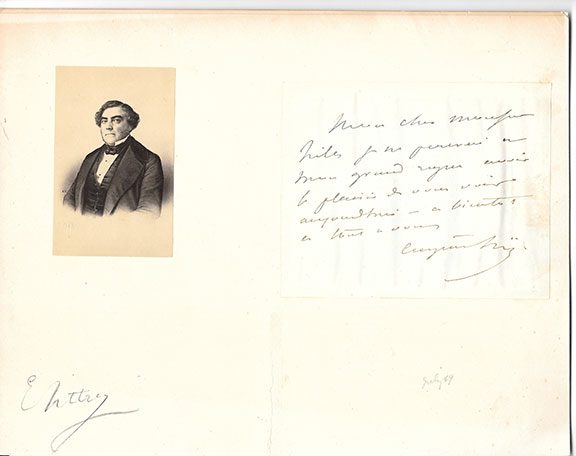 Mon cher monsieur
je ne pourrai a
mon grand regret avoir
le plaisir de vous voir
aujourdhui - a bientot
et tout a vous
Eugène Süe
E Littrey